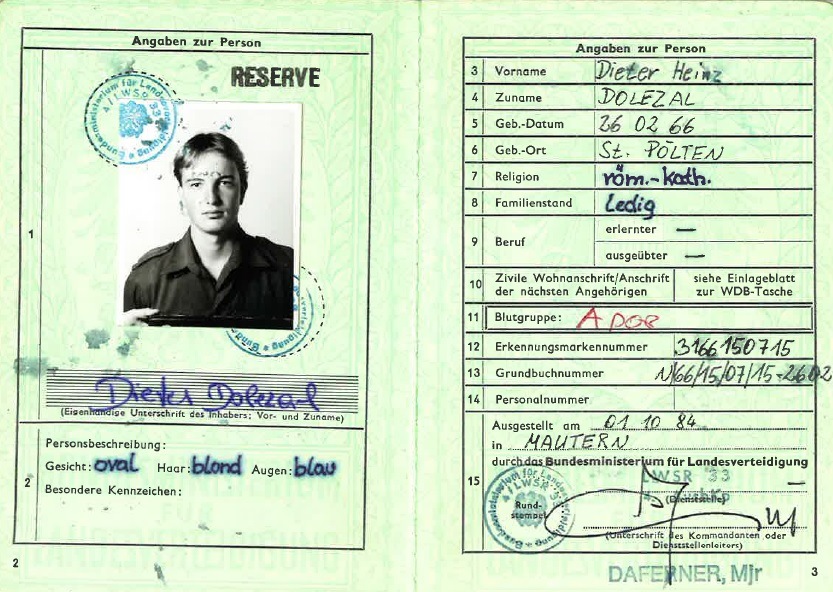 Angaben zur Person
RESERVE
Bundesministerium für Landesverteidigung
4/LWSR 33
1
Dieter Dolezal
(Eigenhändige Unterschrift des Inhabers; Vor- und Zuname)
2
Personsbeschreibung:
Gesicht: oval Haar: blond Augen: blau
Besondere Kennzeichen:
2
Angaben zur Person
3 Vorname Dieter Heinz
4 Zuname DOLEZAL
5 Geb.-Datum 26 02 66
6 Geb.-Ort St. PÖLTEN
7 Religion röm.-kath.
8 Familienstand Ledig
9 Beruf erlernter —
ausgeübter —
10 Zivile Wohnanschrift/Anschrift der nächsten Angehörigen siehe Einlageblatt zur WDB-Tasche
11 Blutgruppe: A pos
12 Erkennungsmarkennummer 3166150715
13 Grundbuchnummer N/66/15/07/15-2602
14 Personalnummer
15 Ausgestellt am 01 10 84
in MAUTERN
durch das Bundesministerium für Landesverteidigung
LWSR 33
(Dienststelle)
Bundesministerium für Landesverteidigung
4/LWSR 33
Rund-
stempel
(Unterschrift des Kommandanten oder
Dienststellenleiters)
DAFERNER, Mjr
3